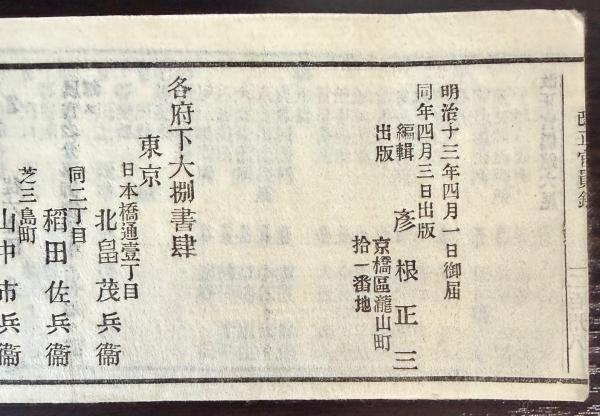 改正官員録
明治十三年四月一日御届
同年四月三日出版
編輯
出版
彦根正三
京橋區瀧山町
拾一番地
各府下大捌書肆
東京
日本橋通壹丁目
北畠茂兵衞
同二丁目
稻田佐兵衞
芝三島町
山中市兵衞